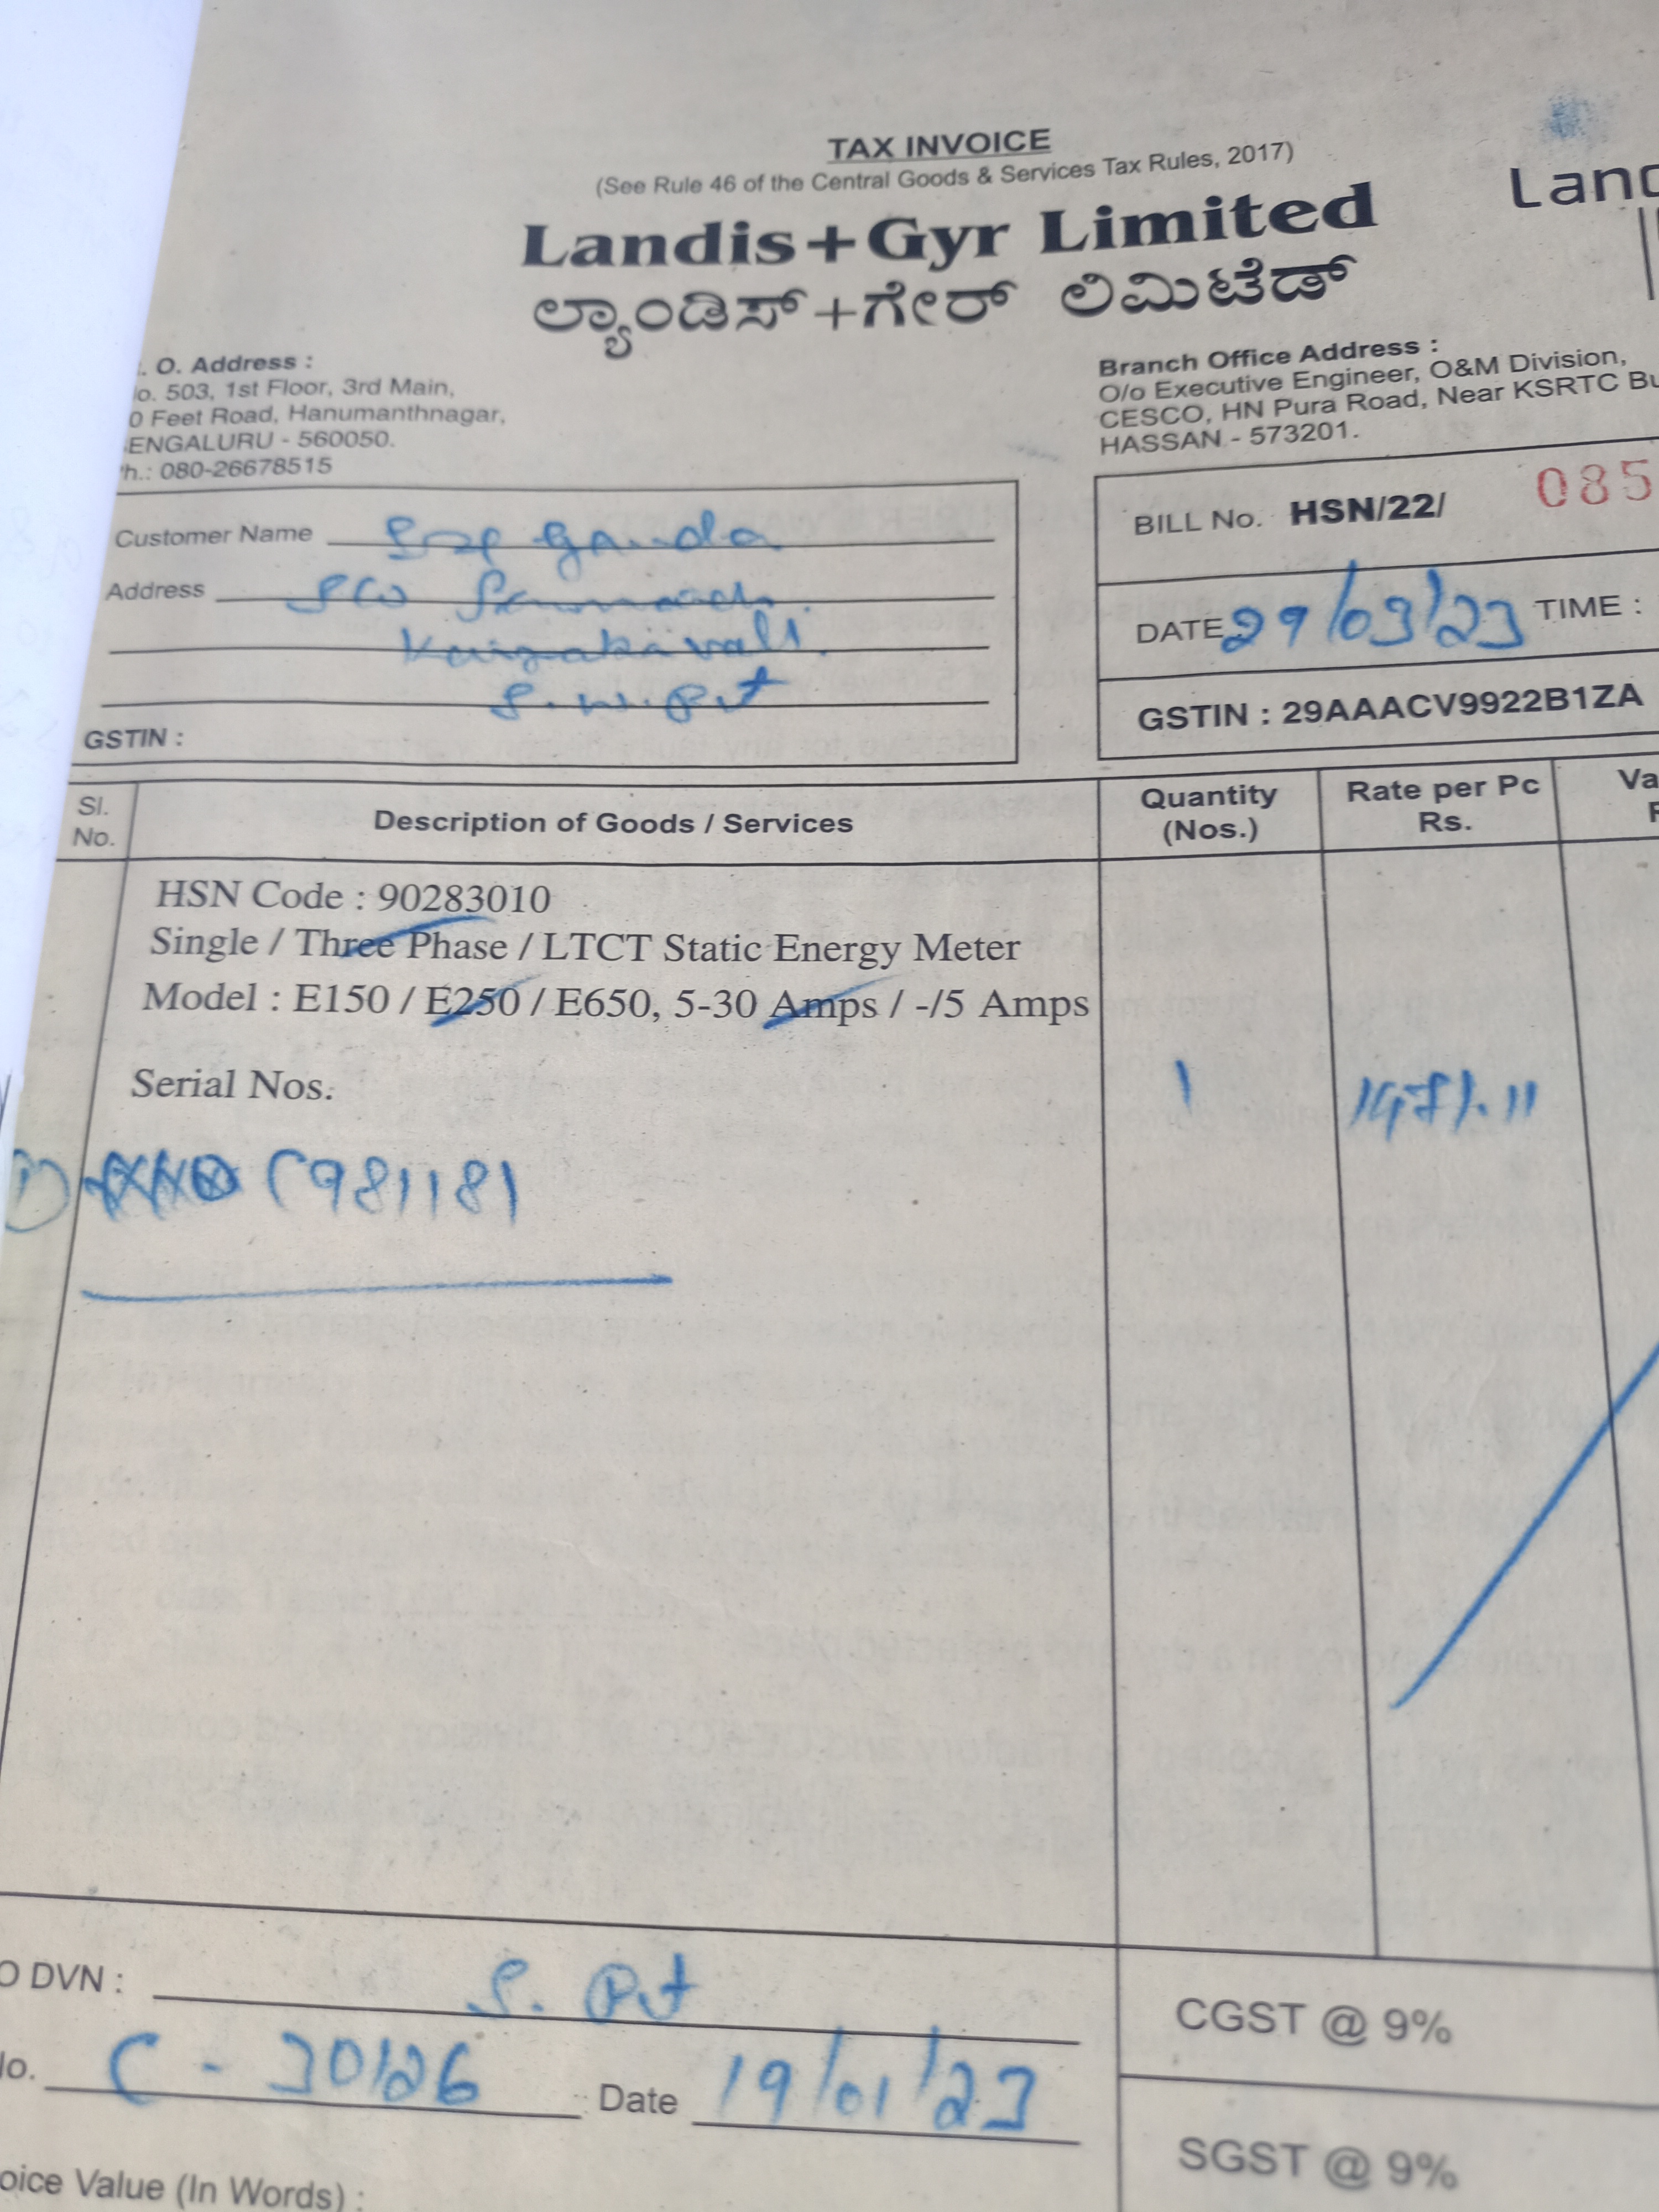 TAX INVOICE
(See Rule 46 of the Central Goods & Services Tax Rules, 2017)
Land
Landis+Gyr Limited
ಲ್ಯಾಂಡಿಸ್+ಗೇರ್ ಲಿಮಿಟೆಡ್
. O. Address :
o. 503, 1st Floor, 3rd Main,
0 Feet Road, Hanumanthnagar,
ENGALURU - 560050.
h.: 080-26678515
Branch Office Address :
O/o Executive Engineer, O&M Division,
CESCO, HN Pura Road, Near KSRTC Bu
HASSAN - 573201.
Customer Name
Address
GSTIN :
BILL No. HSN/22/ 085
DATE 29/03/23 TIME :
GSTIN : 29AAACV9922B1ZA
Sl. No.
Description of Goods / Services
Quantity (Nos.)
Rate per Pc Rs.
Va
HSN Code : 90283010
Single / Three Phase / LTCT Static Energy Meter
Model : E150 / E250 / E650, 5-30 Amps / -/5 Amps
Serial Nos.
1
1471.11
1) C981181
O DVN : S. Pet
No. C - 30126 Date 19/01/23
CGST @ 9%
SGST @ 9%
oice Value (In Words) :